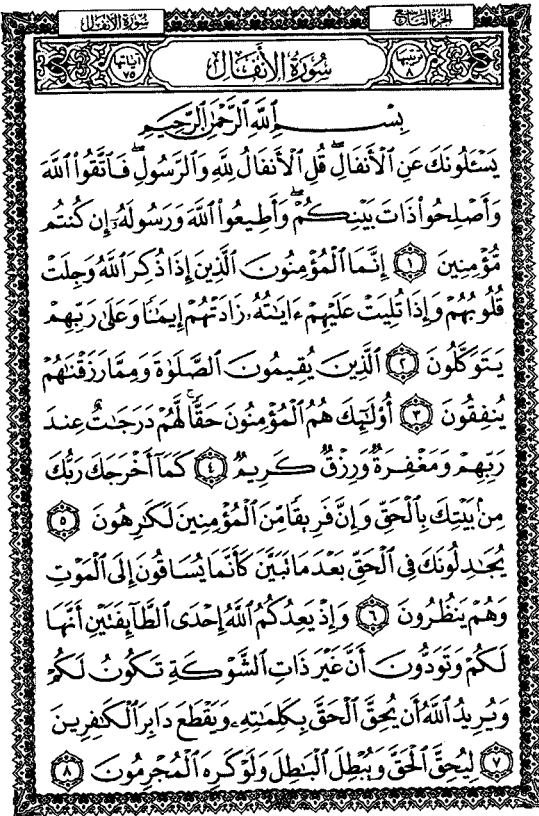 سُورَةُ الأَنفَالِ
الجُزءُ التَّاسِعُ
آياتها ٧٥
سُورَةُ الأَنفَالِ
ترتيبها ٨
بِسْمِ ٱللَّهِ ٱلرَّحْمَٰنِ ٱلرَّحِيمِ
يَسْـَٔلُونَكَ عَنِ ٱلْأَنفَالِ ۖ قُلِ ٱلْأَنفَالُ لِلَّهِ وَٱلرَّسُولِ ۖ فَٱتَّقُوا۟ ٱللَّهَ
وَأَصْلِحُوا۟ ذَاتَ بَيْنِكُمْ ۖ وَأَطِيعُوا۟ ٱللَّهَ وَرَسُولَهُۥٓ إِن كُنتُم
مُّؤْمِنِينَ ١ إِنَّمَا ٱلْمُؤْمِنُونَ ٱلَّذِينَ إِذَا ذُكِرَ ٱللَّهُ وَجِلَتْ
قُلُوبُهُمْ وَإِذَا تُلِيَتْ عَلَيْهِمْ ءَايَـٰتُهُۥ زَادَتْهُمْ إِيمَـٰنًا وَعَلَىٰ رَبِّهِمْ
يَتَوَكَّلُونَ ٢ ٱلَّذِينَ يُقِيمُونَ ٱلصَّلَوٰةَ وَمِمَّا رَزَقْنَـٰهُمْ
يُنفِقُونَ ٣ أُو۟لَـٰٓئِكَ هُمُ ٱلْمُؤْمِنُونَ حَقًّا ۚ لَّهُمْ دَرَجَـٰتٌ عِندَ
رَبِّهِمْ وَمَغْفِرَةٌ وَرِزْقٌ كَرِيمٌ ٤ كَمَآ أَخْرَجَكَ رَبُّكَ
مِنۢ بَيْتِكَ بِٱلْحَقِّ وَإِنَّ فَرِيقًا مِّنَ ٱلْمُؤْمِنِينَ لَكَـٰرِهُونَ ٥
يُجَـٰدِلُونَكَ فِى ٱلْحَقِّ بَعْدَ مَا تَبَيَّنَ كَأَنَّمَا يُسَاقُونَ إِلَى ٱلْمَوْتِ
وَهُمْ يَنظُرُونَ ٦ وَإِذْ يَعِدُكُمُ ٱللَّهُ إِحْدَى ٱلطَّآئِفَتَيْنِ أَنَّهَا
لَكُمْ وَتَوَدُّونَ أَنَّ غَيْرَ ذَاتِ ٱلشَّوْكَةِ تَكُونُ لَكُمْ
وَيُرِيدُ ٱللَّهُ أَن يُحِقَّ ٱلْحَقَّ بِكَلِمَـٰتِهِۦ وَيَقْطَعَ دَابِرَ ٱلْكَـٰفِرِينَ
٧ لِيُحِقَّ ٱلْحَقَّ وَيُبْطِلَ ٱلْبَـٰطِلَ وَلَوْ كَرِهَ ٱلْمُجْرِمُونَ ٨